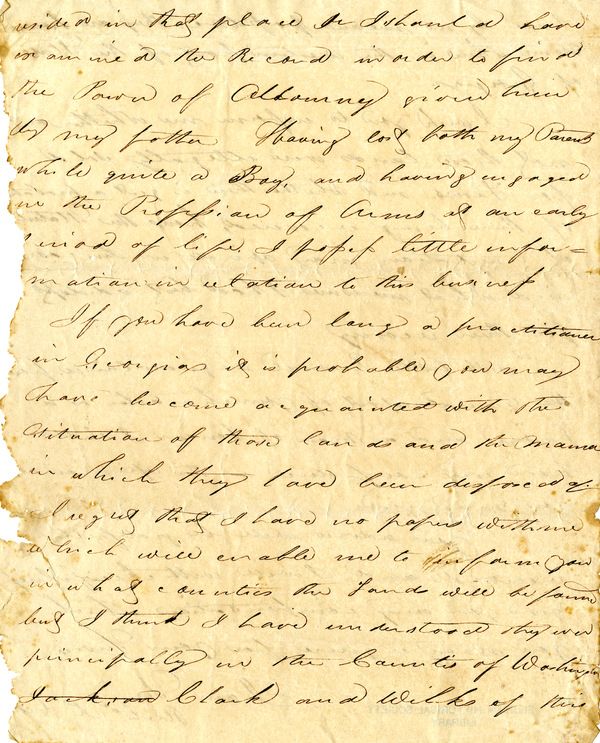 resided in that place & I should have
examined the Record in order to find
the Power of Attourney given him
by my father Having lost both my Parents
while quite a Boy, and having engaged
in the Profession of Arms at an early
Period of life, I possess little infor=
mation in relation to this business
If you have been long a practitioner
in Georgia it is probable you may
have become acquainted with the
Situation of those lands and the manner
in which they have been disposed of.
I regret that I have no papers with me
which will enable me to inform you
in what counties the Lands will be found
but I think I have understood they were
principally in the Counties of Washington
Jackson Clark and Wilks of this